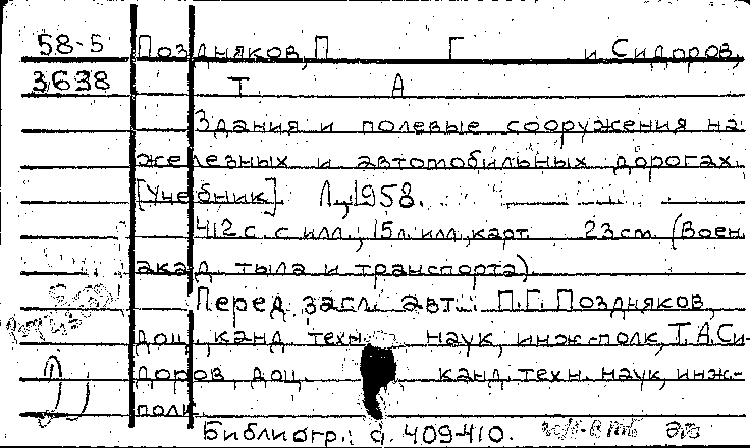 58-5 Поздняков, П Г и Сидоров,
3638 Т А
Здания и полевые сооружения на
железных и автомобильных дорогах.
[Учебник]. Л., 1958.
412 с. с илл.; 15 л. илл., карт. 23 см. (Воен.
акад. тыла и транспорта).
Перед загл. авт.: П.Г. Поздняков,
доц., канд. техн. наук, инж.-полк., Т.А. Си-
доров, доц. канд. техн. наук, инж.-
полк.
Библиогр.: с. 409-410.